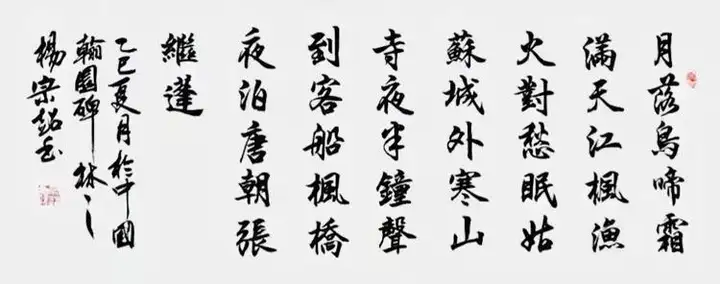 月落烏啼霜
滿天江楓漁
火對愁眠姑
蘇城外寒山
寺夜半鐘聲
到客船楓橋
夜泊唐朝張
繼
乙巳夏月於中國
翰園碑林
楊宗